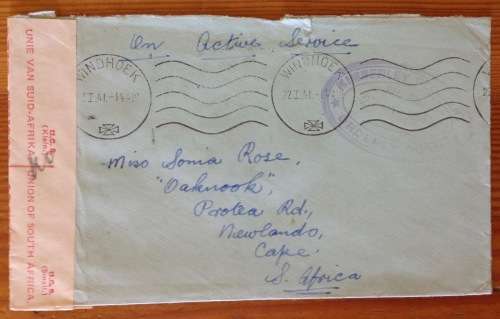 On Active Service
WINDHOEK
I.41.-
WINDHOEK
22.I.41.-
Miss Sonia Rose,
"Oaknook",
Protea Rd.,
Newlands,
Cape.
S. Africa
UNIE VAN SUID-AFRIKA. UNION OF SOUTH AFRICA.
O.C.S.
(Klein.)
U.C.S.
(Small.)